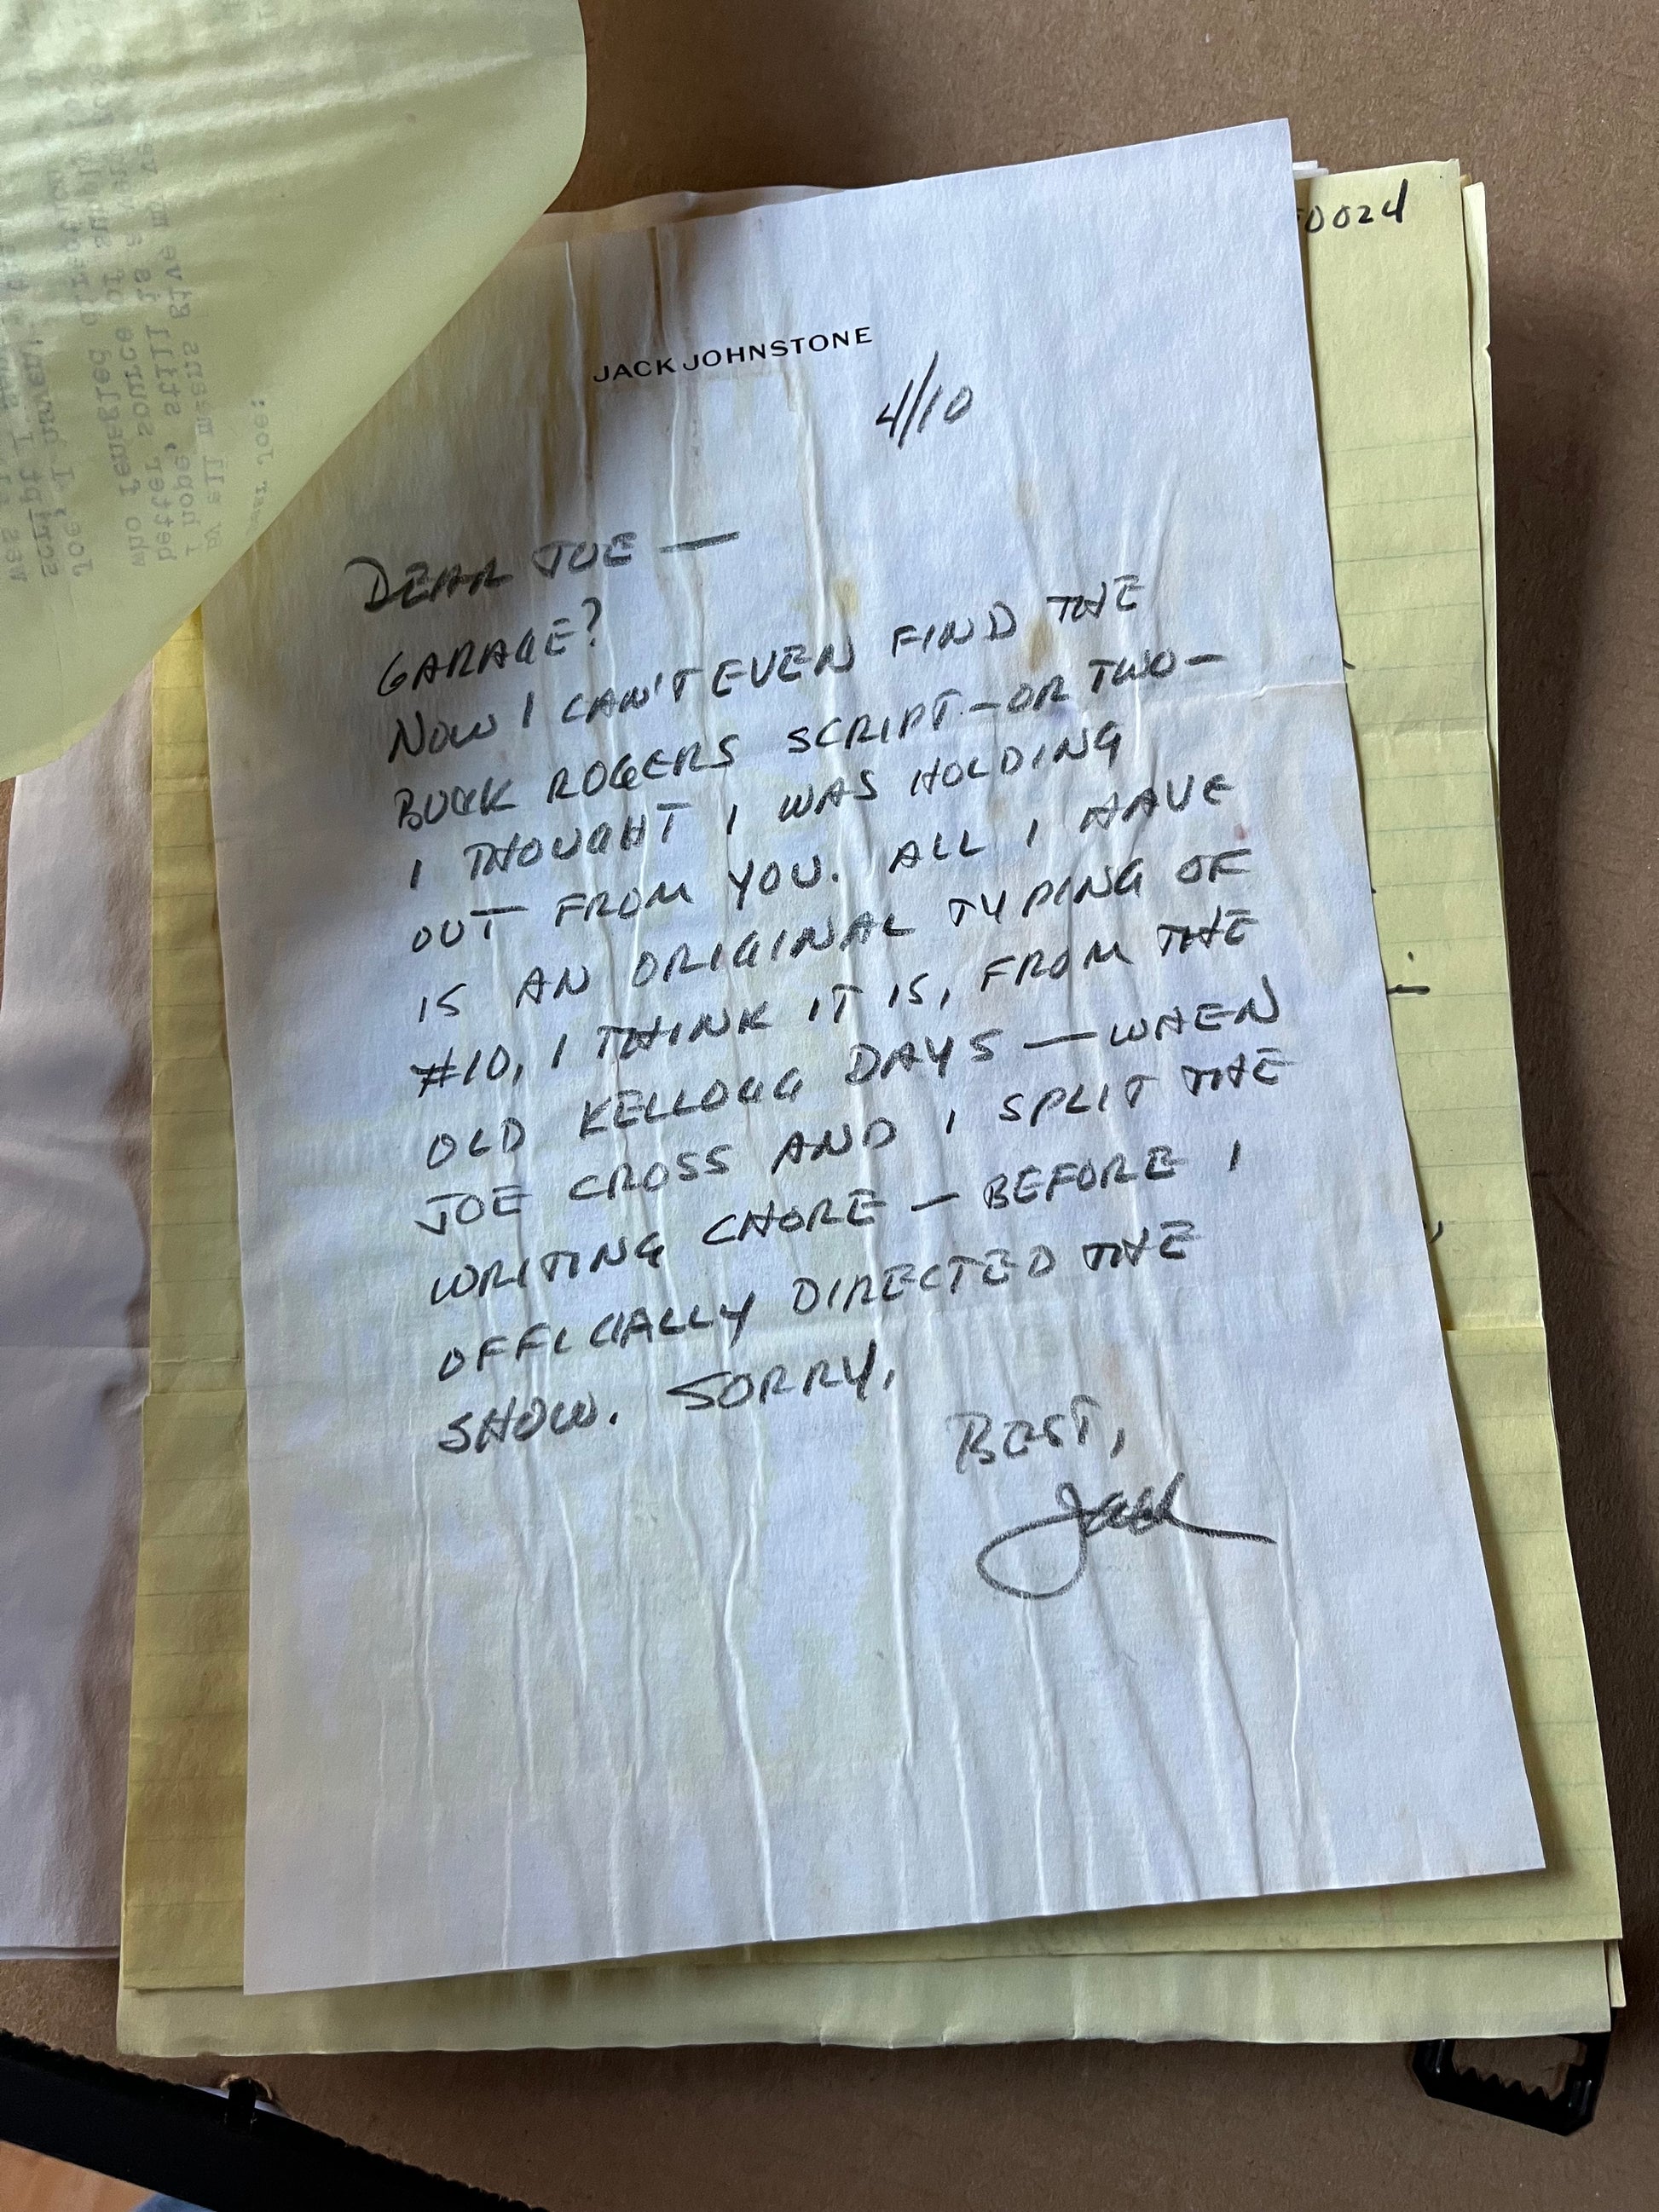 JACK JOHNSTONE
4/10
DEAR JOE —
GARAGE?
NOW I CAN'T EVEN FIND THE
BUCK ROGERS SCRIPT — OR TWO —
I THOUGHT I WAS HOLDING
OUT FROM YOU. ALL I HAVE
IS AN ORIGINAL TYPING OF
#10, I THINK IT IS, FROM THE
OLD KELLOGG DAYS — WHEN
JOE CROSS AND I SPLIT THE
WRITING CHORE — BEFORE I
OFFICIALLY DIRECTED THE
SHOW. SORRY,
BEST,
Jack
0024
Joe:
by all means give
I hope, still is a
better source of
who
Joe, I haven't
script I
was